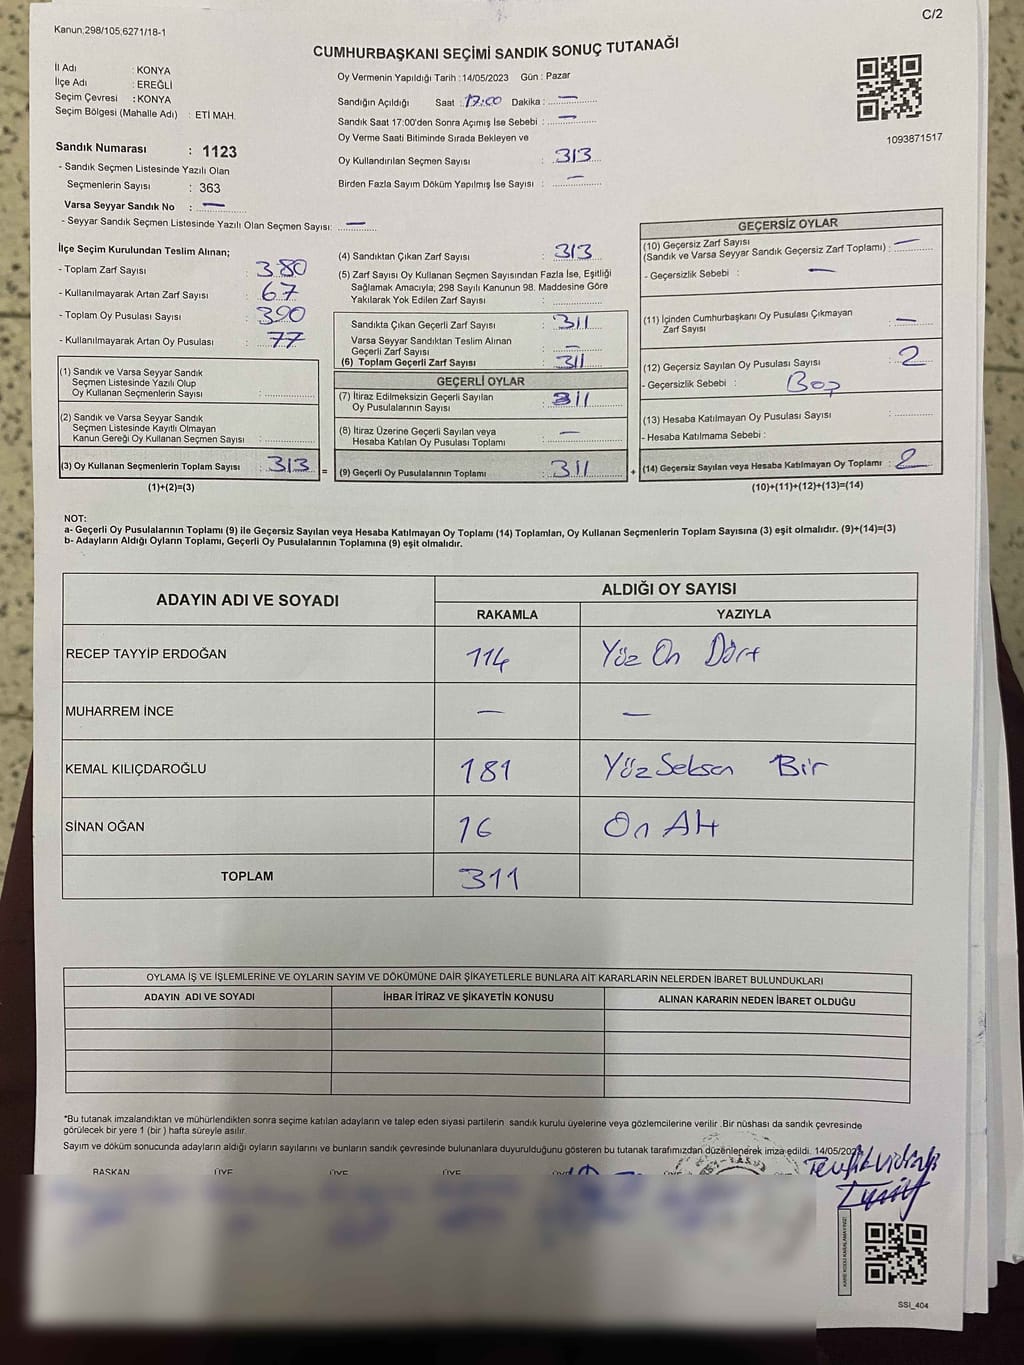 C/2
Kanun,298/105,6271/18-1
CUMHURBAŞKANI SEÇİMİ SANDIK SONUÇ TUTANAĞI
İl Adı : KONYA
İlçe Adı : EREĞLİ
Seçim Çevresi : KONYA
Seçim Bölgesi (Mahalle Adı) : ETİ MAH.
Sandık Numarası : 1123
- Sandık Seçmen Listesinde Yazılı Olan
Seçmenlerin Sayısı : 363
Varsa Seyyar Sandık No : —
- Seyyar Sandık Seçmen Listesinde Yazılı Olan Seçmen Sayısı: —
Oy Vermenin Yapıldığı Tarih : 14/05/2023 Gün : Pazar
Sandığın Açıldığı Saat : 17:00 Dakika : —
Sandık Saat 17:00'den Sonra Açımış İse Sebebi : —
Oy Verme Saati Bitiminde Sırada Bekleyen ve
Oy Kullandırılan Seçmen Sayısı : 313
Birden Fazla Sayım Döküm Yapılmış İse Sayısı : —
1093871517
İlçe Seçim Kurulundan Teslim Alınan;
- Toplam Zarf Sayısı : 380
- Kullanılmayarak Artan Zarf Sayısı : 67
- Toplam Oy Pusulası Sayısı : 390
- Kullanılmayarak Artan Oy Pusulası : 77
(1) Sandık ve Varsa Seyyar Sandık
Seçmen Listesinde Yazılı Olup
Oy Kullanan Seçmenlerin Sayısı :
(2) Sandık ve Varsa Seyyar Sandık
Seçmen Listesinde Kayıtlı Olmayan
Kanun Gereği Oy Kullanan Seçmen Sayısı :
(3) Oy Kullanan Seçmenlerin Toplam Sayısı : 313 =
(1)+(2)=(3)
(4) Sandıktan Çıkan Zarf Sayısı : 313
(5) Zarf Sayısı Oy Kullanan Seçmen Sayısından Fazla İse, Eşitliği
Sağlamak Amacıyla; 298 Sayılı Kanunun 98. Maddesine Göre
Yakılarak Yok Edilen Zarf Sayısı :
Sandıkta Çıkan Geçerli Zarf Sayısı : 311
Varsa Seyyar Sandıktan Teslim Alınan
Geçerli Zarf Sayısı : —
(6) Toplam Geçerli Zarf Sayısı : 311
GEÇERLİ OYLAR
(7) İtiraz Edilmeksizin Geçerli Sayılan
Oy Pusulalarının Sayısı : 311
(8) İtiraz Üzerine Geçerli Sayılan veya
Hesaba Katılan Oy Pusulası Toplamı : —
(9) Geçerli Oy Pusulalarının Toplamı : 311 +
GEÇERSİZ OYLAR
(10) Geçersiz Zarf Sayısı
(Sandık ve Varsa Seyyar Sandık Geçersiz Zarf Toplamı) : —
- Geçersizlik Sebebi : —
(11) İçinden Cumhurbaşkanı Oy Pusulası Çıkmayan
Zarf Sayısı : —
(12) Geçersiz Sayılan Oy Pusulası Sayısı : 2
- Geçersizlik Sebebi : Boş
(13) Hesaba Katılmayan Oy Pusulası Sayısı :
- Hesaba Katılmama Sebebi :
(14) Geçersiz Sayılan veya Hesaba Katılmayan Oy Toplamı : 2
(10)+(11)+(12)+(13)=(14)
NOT:
a- Geçerli Oy Pusulalarının Toplamı (9) ile Geçersiz Sayılan veya Hesaba Katılmayan Oy Toplamı (14) Toplamları, Oy Kullanan Seçmenlerin Toplam Sayısına (3) eşit olmalıdır. (9)+(14)=(3)
b- Adayların Aldığı Oyların Toplamı, Geçerli Oy Pusulalarının Toplamına (9) eşit olmalıdır.
ADAYIN ADI VE SOYADI ALDIĞI OY SAYISI
RAKAMLA YAZIYLA
RECEP TAYYİP ERDOĞAN 114 Yüz On Dört
MUHARREM İNCE — —
KEMAL KILIÇDAROĞLU 181 Yüz Seksen Bir
SİNAN OĞAN 16 On Altı
TOPLAM 311
OYLAMA İŞ VE İŞLEMLERİNE VE OYLARIN SAYIM VE DÖKÜMÜNE DAİR ŞİKAYETLERLE BUNLARA AİT KARARLARIN NELERDEN İBARET BULUNDUKLARI
ADAYIN ADI VE SOYADI İHBAR İTİRAZ VE ŞİKAYETİN KONUSU ALINAN KARARIN NEDEN İBARET OLDUĞU
*Bu tutanak imzalandıktan ve mühürlendikten sonra seçime katılan adayların ve talep eden siyasi partilerin sandık kurulu üyelerine veya gözlemcilerine verilir .Bir nüshası da sandık çevresinde
görülecek bir yere 1 (bir ) hafta süreyle asılır.
Sayım ve döküm sonucunda adayların aldığı oyların sayılarını ve bunların sandık çevresinde bulunanlara duyurulduğunu gösteren bu tutanak tarafımızdan düzenlenerek imza edildi. 14/05/202
BAŞKAN ÜYE ÜYE ÜYE
SSI_404